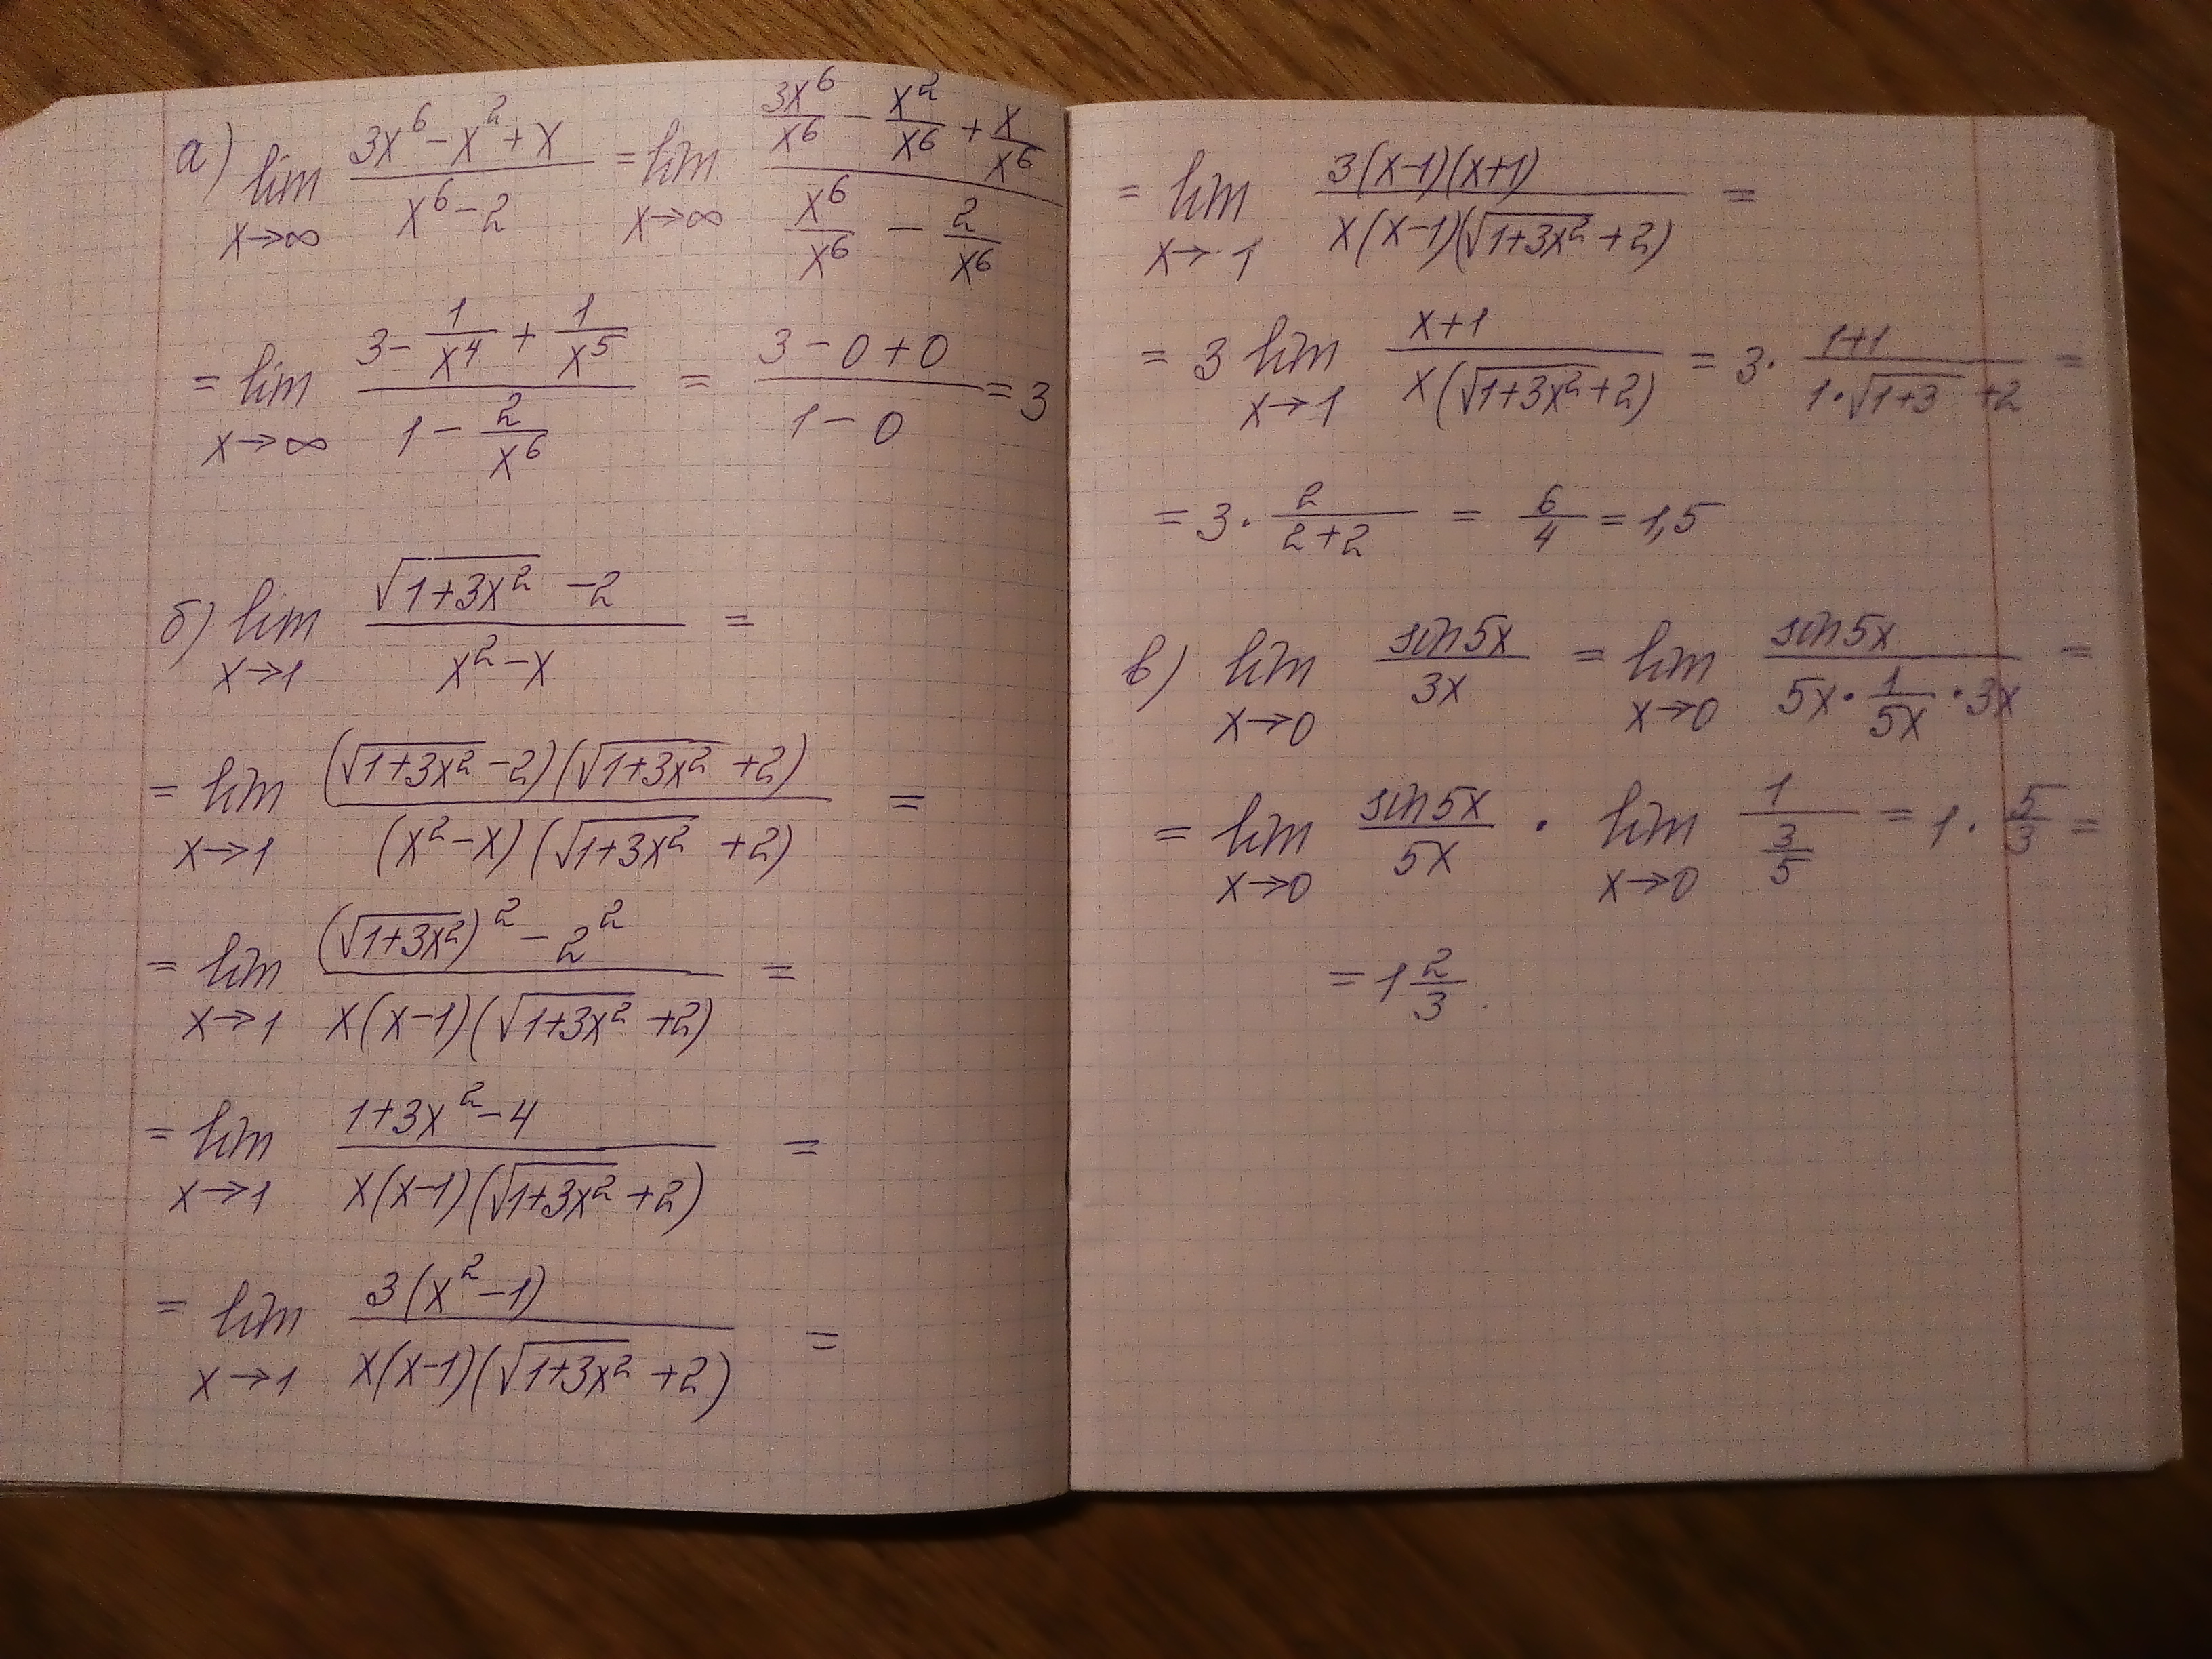 а) lim x→∞ (3x⁶ − x² + x)/(x⁶ − 2) = lim x→∞ (3x⁶/x⁶ − x²/x⁶ + x/x⁶)/(x⁶/x⁶ − 2/x⁶)
= lim x→∞ (3 − 1/x⁴ + 1/x⁵)/(1 − 2/x⁶) = (3 − 0 + 0)/(1 − 0) = 3
б) lim x→1 (√(1+3x²) − 2)/(x² − x) =
= lim x→1 ((√(1+3x²) − 2)(√(1+3x²) + 2))/((x² − x)(√(1+3x²) + 2)) =
= lim x→1 ((√(1+3x²))² − 2²)/(x(x−1)(√(1+3x²) + 2)) =
= lim x→1 (1+3x² − 4)/(x(x−1)(√(1+3x²) + 2)) =
= lim x→1 (3(x² − 1))/(x(x−1)(√(1+3x²) + 2)) =
= lim x→1 (3(x−1)(x+1))/(x(x−1)(√(1+3x²) + 2)) =
= 3 lim x→1 (x+1)/(x(√(1+3x²) + 2)) = 3 · (1+1)/(1·√(1+3) + 2) =
= 3 · 2/(2+2) = 6/4 = 1,5
в) lim x→0 sin5x/3x = lim x→0 sin5x/(5x · 1/5x · 3x) =
= lim x→0 sin5x/5x · lim x→0 1/(3/5) = 1 · 5/3 =
= 1 2/3.